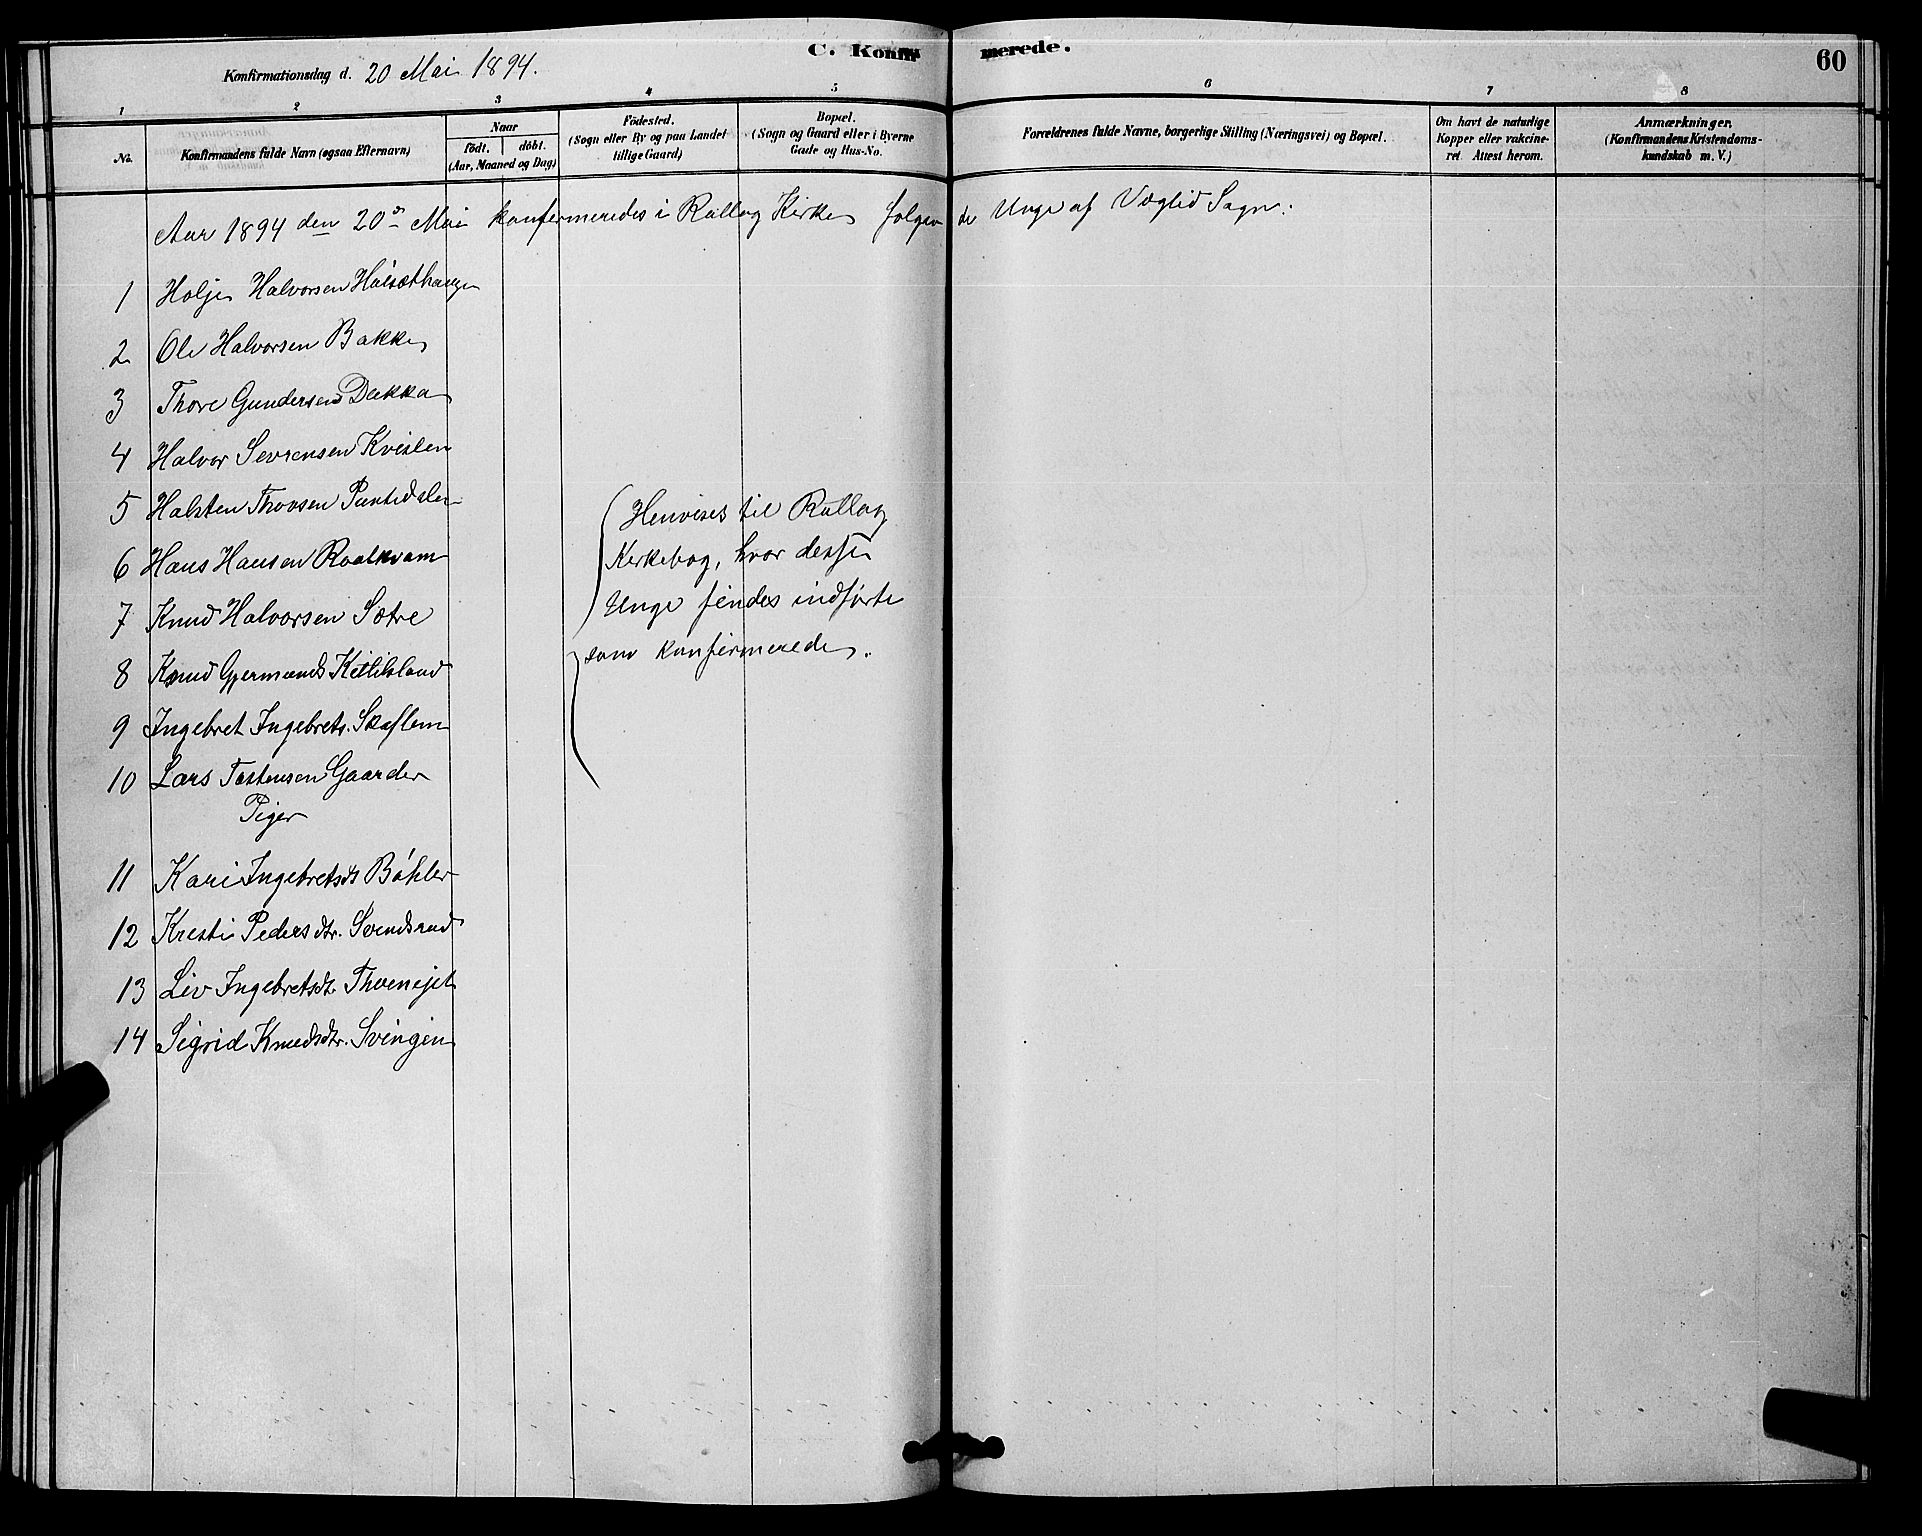 C. Konfirmerede.
60
Konfirmationsdag d. 20 Mai 1894.
1 2 3 4 5 6 7 8
No.
Konfirmandens fulde Navn (ogsaa Efternavn)
Naar
födt. döbt.
(Aar, Maaned og Dag)
Födested.
(Sogn eller By og paa Landet
tillige Gaard)
Bopæl.
(Sogn og Gaard eller i Byerne
Gade og Hus-No.
Forældrenes fulde Navne, borgerlige Stilling (Næringsvei) og Bopæl.
Om havt de naturlige
Kopper eller vakcine-
ret Attest herom.
Anmærkninger,
(Konfirmandens Kristendoms-
kundskab m. V.)
Aar 1894 den 20de Mai konfirmeredes i Rollag Kirke følgende Unge af Væglid Sogn:
1 Holje Halvorsen
2 Ole Halvorsen Bakke
3 Thore Gundersen Dækka
4 Halvor Sevrensen Kvislen
5 Halsten Thorsen
6 Hans Hansen Raalkvam
7 Knud Halvorsen Sætre
8 Knud Gjermunds Kittilsland
9 Ingebret Ingebrets. Skaflem
10 Lars Tostensen Gaarder
Piger
11 Kari Ingebretsdt Bøhler
12 Kristi Pedersdtr. Svendsrud
13 Liv Ingebretsdt.
14 Sigrid Knudsdtr. Svingen
Henvises til Rollag
Kirkebog, hvor desse
Unge findes indførte
som konfirmerede.